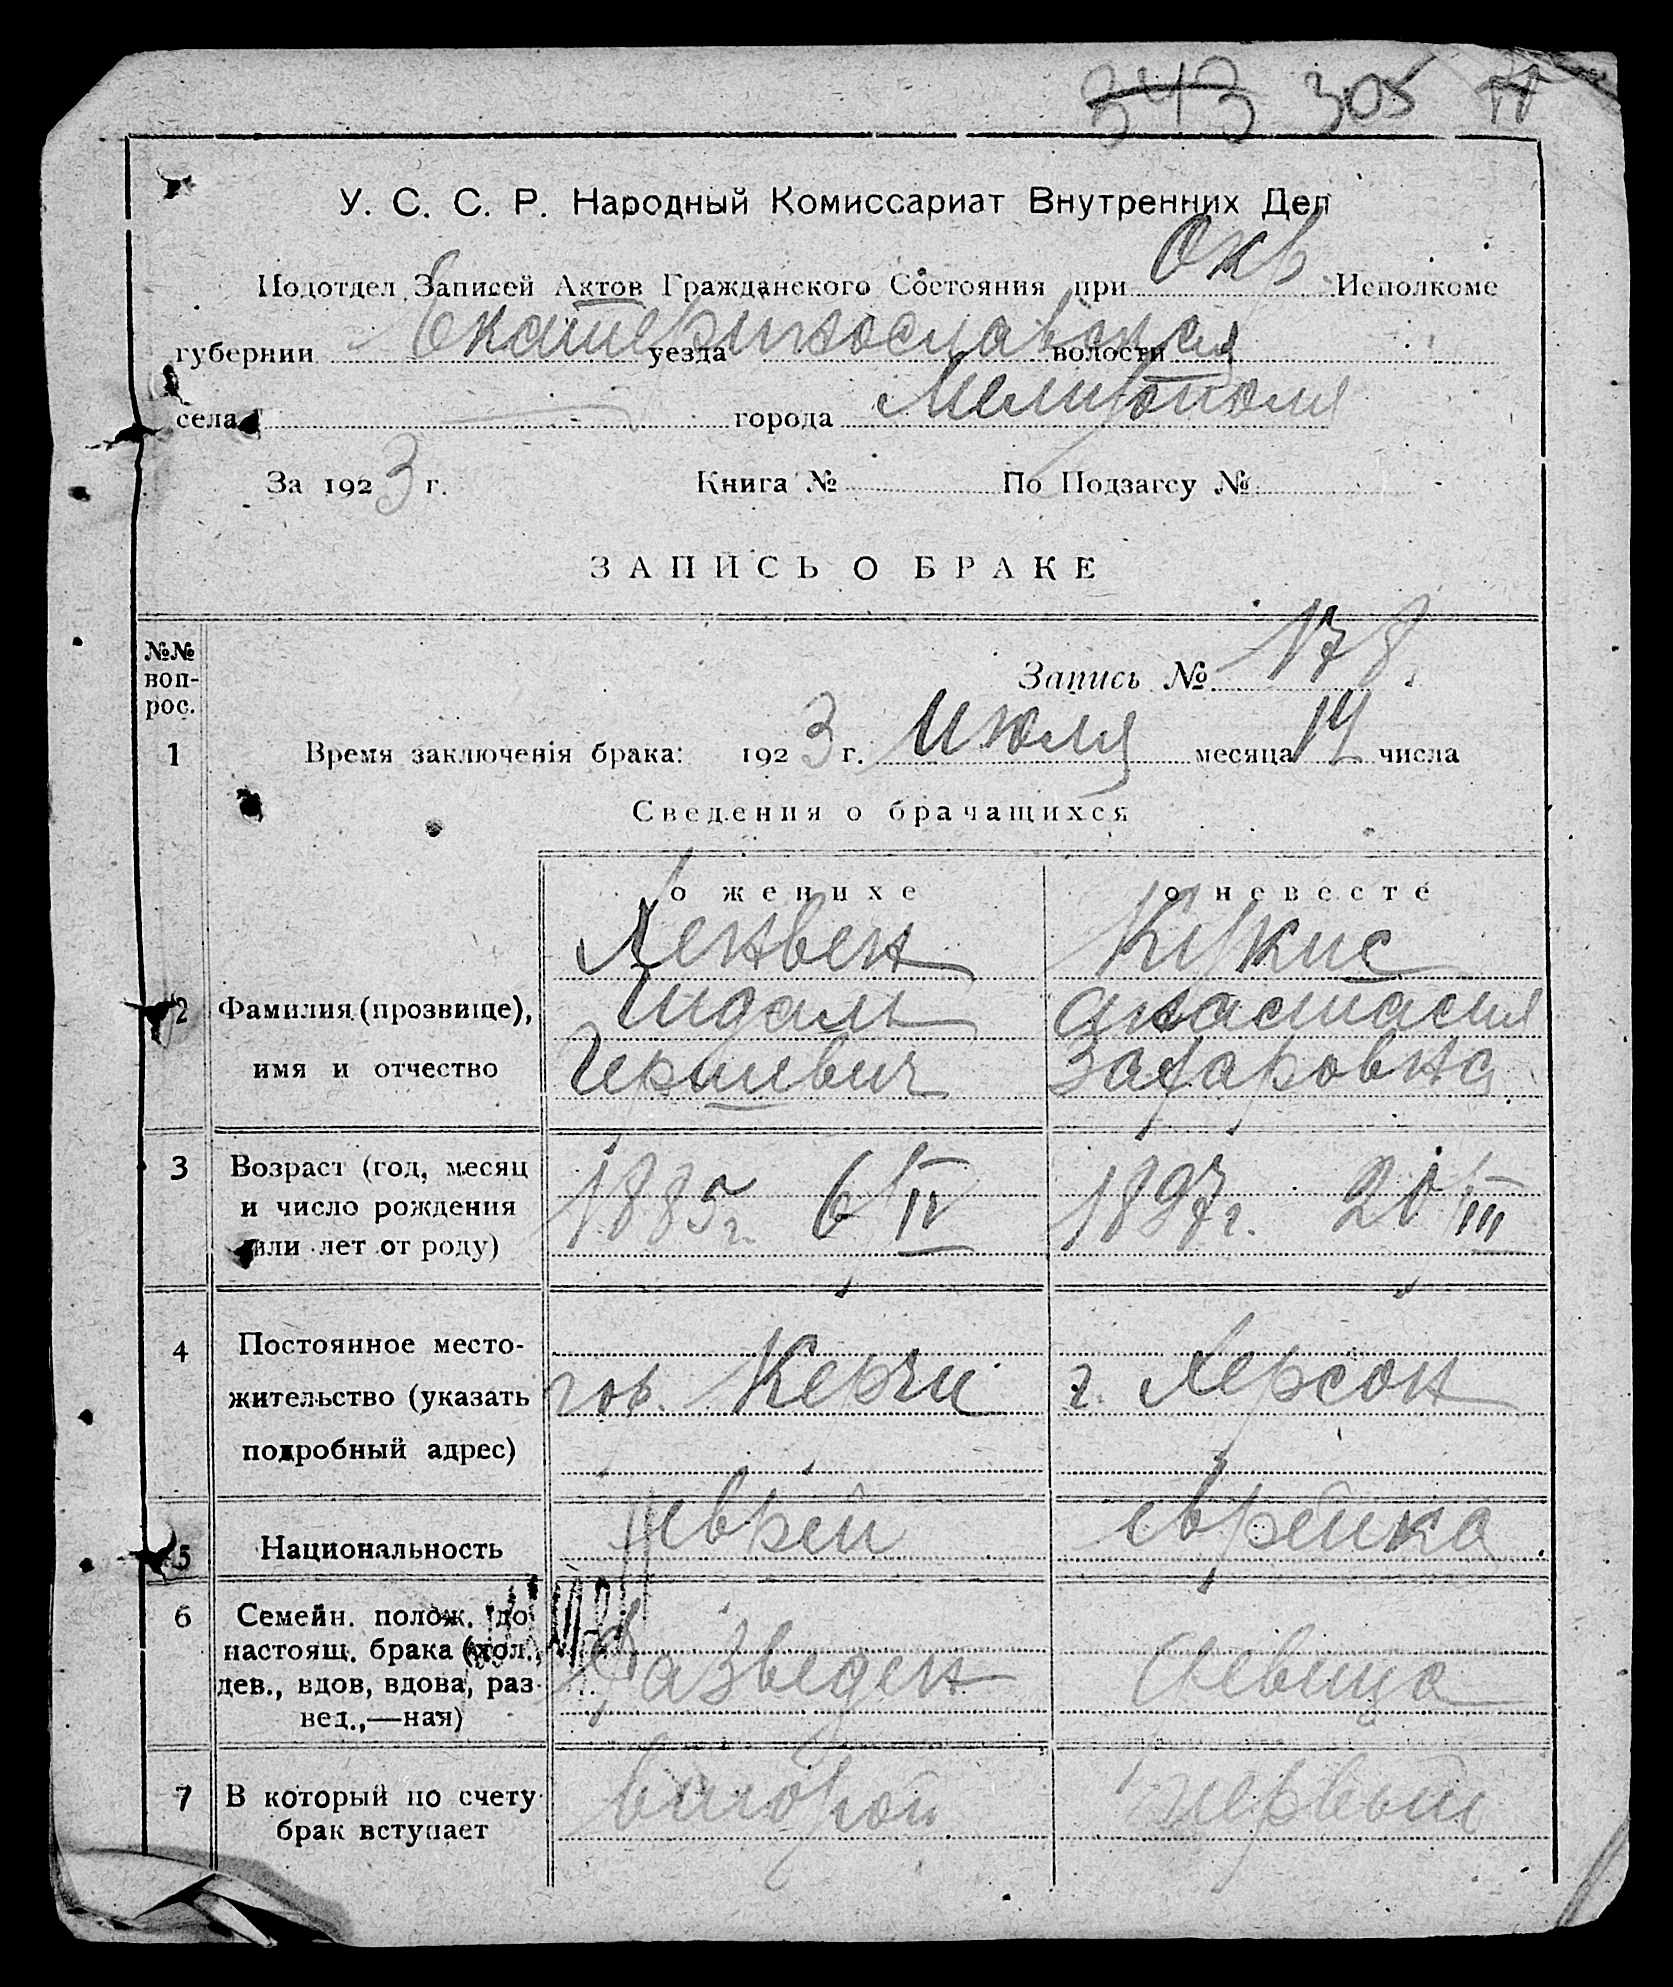 343 305
У. С. С. Р. Народный Комиссариат Внутренних Дел
Подотдел Записей Актов Гражданского Состояния при Окр Исполкоме
губернии Екатеринославская уезда волости
села города Мелитополя
За 1923 г. Книга № По Подзагсу №
ЗАПИСЬ О БРАКЕ
№№ воп-
рос.
Запись № 178
1 Время заключенія брака: 1923 г. Июля месяца 14 числа
Сведения о брачащихся
о женихе о невесте
Ленвен Кукис
2 Фамилия (прозвище), Шдаль Анастасия
имя и отчество Гершевич Захаровна
3 Возраст (год, месяц
и число рождения 1885 г. 6/IV 1897 г. 21/III
или лет от роду)
4 Постоянное место-
жительство (указать гор. Керчи г. Херсон
подробный адрес)
5 Национальность еврей еврейка
6 Семейн. полож. до
настоящ. брака (хол.,
дев., вдов, вдова, раз- Разведен девица
вед.,—ная)
7 В который по счету второй первый
брак вступает